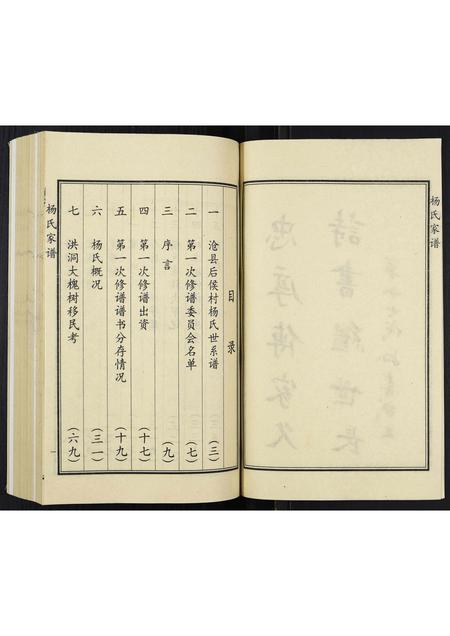 杨氏家谱
詩書繼世長
忠厚傳家久
目录
一 沧县后侯村杨氏世系谱 (三)
二 第一次修谱委员会名单 (七)
三 序言 (九)
四 第一次修谱出资 (十七)
五 第一次修谱谱书分存情况 (十九)
六 杨氏概况 (三一)
七 洪洞大槐树移民考 (六九)
杨氏家谱
一